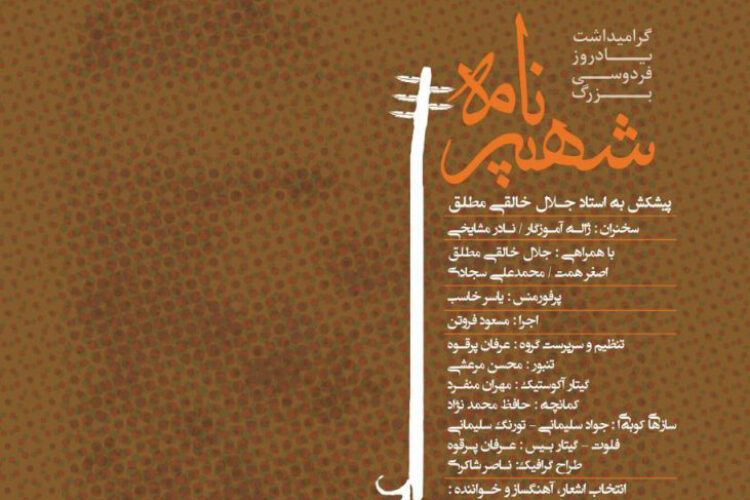 گرامیداشت
یادروز
فردوسی
بزرگ
شهپر نامه
پیشکش به استاد جلال خالقی مطلق
سخنران : ژاله آموزگار / نادر مشایخی
با همراهی : جلال خالقی مطلق
اصغر همت / محمدعلی سجادی
پرفورمنس : یاسر خاسب
اجرا : مسعود فروتن
تنظیم و سرپرست گروه : عرفان پرقوه
تنبور : محسن مرعشی
گیتار آکوستیک : مهران منفرد
کمانچه : حافظ محمد نژاد
سازهای کوبه‌ای : جواد سلیمانی - تورنگ سلیمانی
فلوت - گیتار بیس : عرفان پرقوه
طراح گرافیک : ناصر شاکری
انتخاب اشعار، آهنگساز و خواننده :